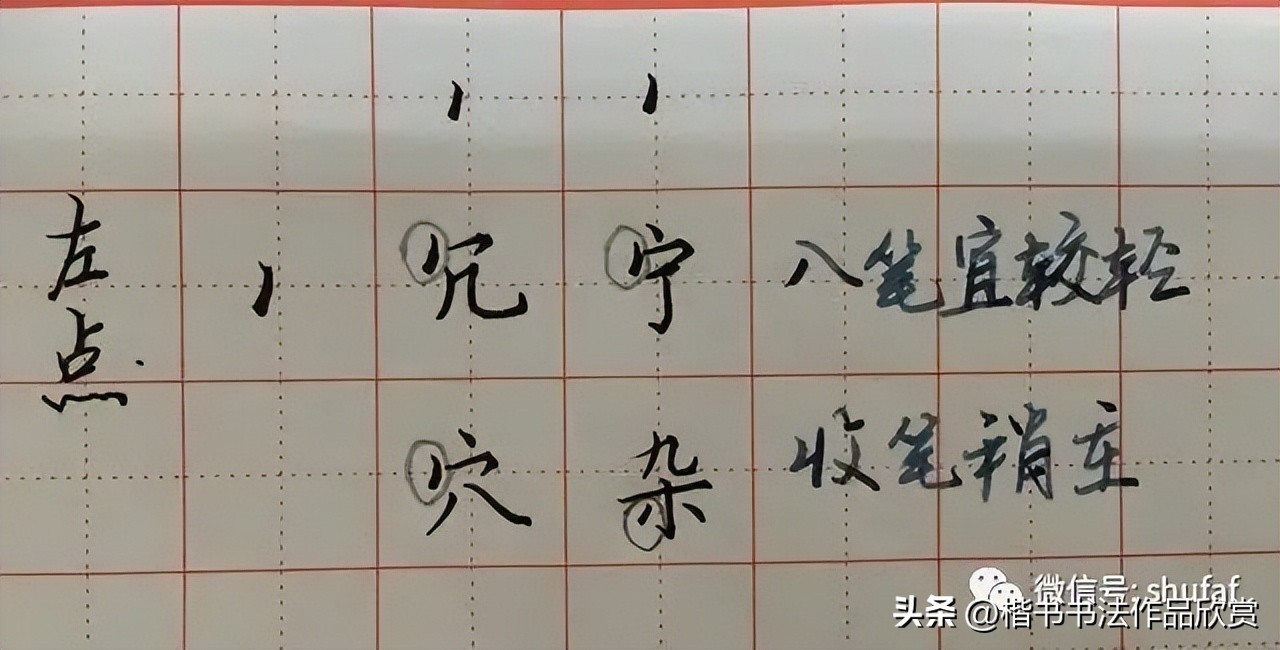 左点
冗 宁 入笔宜较轻
穴 杂 收笔稍重
微信号: shufaf
头条 @楷书书法作品欣赏